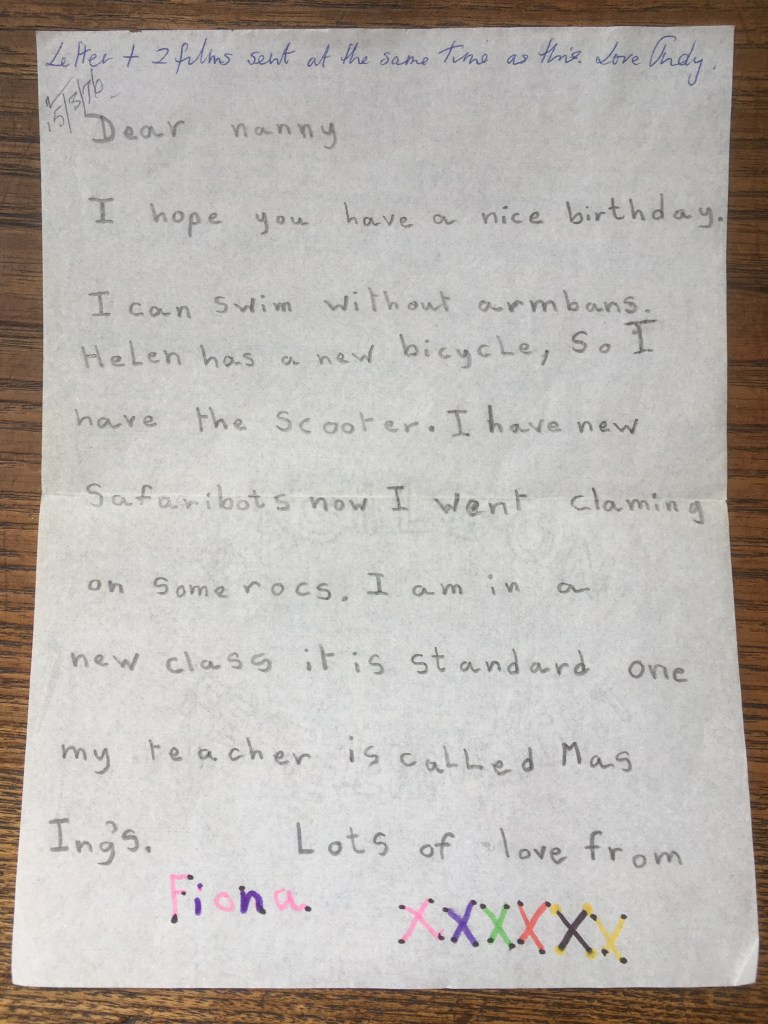 Letter + 2 films sent at the same time as this. Love Andy.
15/3/76
Dear nanny
I hope you have a nice birthday.
I can swim without armbans.
Helen has a new bicycle, So I
have the scooter. I have new
Safaribots now I went claming
on some rocs. I am in a
new class it is standard one
my teacher is called Mas
Ing's. Lots of love from
Fiona. XXXXXX